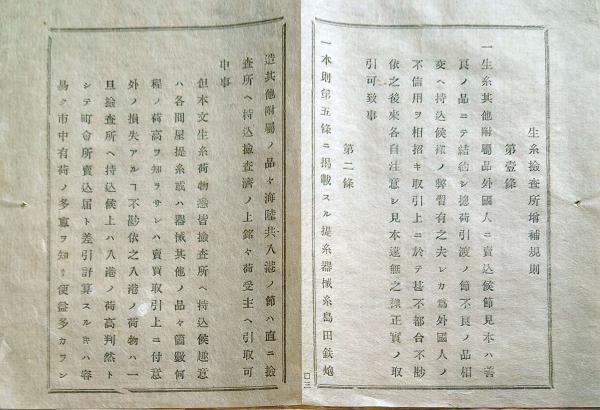 生糸撿査所增補規則
第壹條
一生糸其他附屬品外國人ニ賣込候節見本ハ善
良ノ品ニテ結約シ摠荷引渡ノ節不良ノ品相
交ヘ持込候樣ノ弊習有之夫レカ爲外國人ノ
不信用ヲ相招キ取引上ニ於テ甚不都合不尠
依之後來各自注意シ見本違無之樣正實ノ取
引可致事
第二條
一本則第五條ニ掲載スル提糸器械糸島田鉄炮
造其他附屬ノ品々海陸共入港ノ節ハ直ニ撿
査所ヘ持込撿査濟ノ上銘々荷受主ヘ引取可
申事
但本文生糸荷物悉皆撿査所ヘ持込候趣意
ハ各問屋提糸或ハ器械其他ノ品々箇數何
程ノ荷高ヲ知ラサレハ賣買取引上ニ付意
外ノ損失アルヿ不尠依之入港ノ荷物ハ一
旦撿査所ヘ持込候上ハ入港ノ荷高判然ト
シテ町會所賣込届ト差引計算スルキハ容
易ク市中有荷ノ多寡ヲ知リ便益多カラン
口三